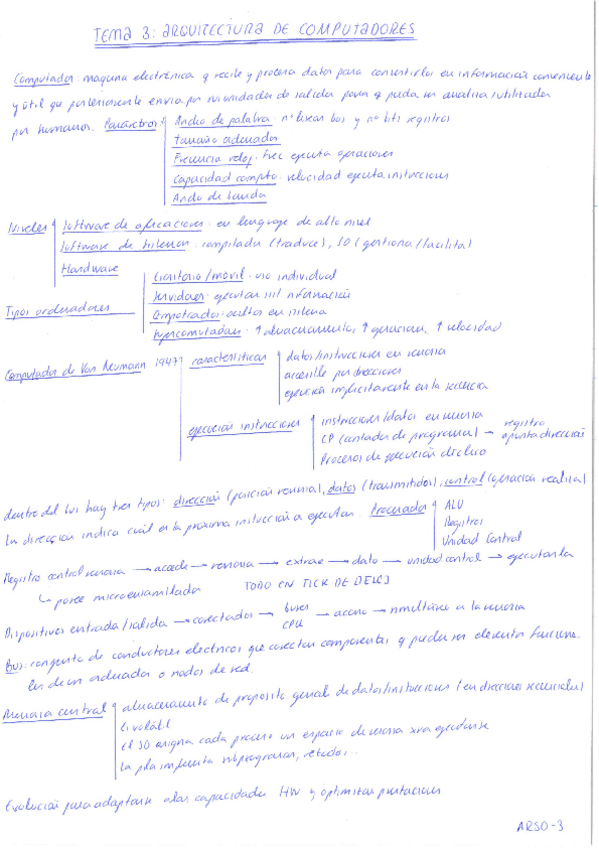 TEMA 3: ARQUITECTURA DE COMPUTADORES
Computador: maquina electrónica q recibe y procesa datos para convertirlos en información conveniente
y útil que posteriormente envia por sus unidades de salida para q pueda ser analiza/utilizada
por humanos. Parámetros
Ancho de palabra: nº lineas bus y nº bits registros
Tamaño ordenador
Frecuencia reloj: frec ejecuta operaciones
Capacidad computo: velocidad ejecuta instrucciones
Ancho de banda
Niveles
Software de aplicaciones: en lenguaje de alto nivel
Software de sistemas: compilador (traduce), SO (gestiona/facilita)
Hardware
Tipos ordenadores
Escritorio/movil: uso individual
Servidores: ejecutan información
Empotrados: ocultos en sistema
Supercomputador: ↑ almacenamiento, ↑ operaciones, ↑ velocidad
Computador de Von Neumann 1947
características
datos/instrucciones en memoria
accesible por direcciones
ejecución implicitamente en la secuencia
ejecución instrucciones
instrucciones/datos en memoria
CP (contador de programa) → registro apunta dirección
Procesos de ejecución
dentro del bus hay tres tipos: dirección (posición memoria), datos (transmitidos), control (operación realiza)
La dirección indica cuál es la próxima instrucción a ejecutar. Procesador
ALU
Registros
Unidad Control
Registro control memoria → accede → memoria → extrae → dato → unidad control → ejecutarla
↳ posee microensamblada TODO EN TICK DE RELOJ
Dispositivos entrada/salida → conectados → buses CPU → acceso → simultáneo a la memoria
Bus: conjunto de conductores electricos que conectan componentes q pueden ser elementos funciona-
les de un ordenador o nodos de red.
Memoria central
almacenamiento de proposito general de datos/instrucciones (en direcciones secuenciales)
Es volátil
El SO asigna cada proceso un espacio de memoria xra ejecutarse
La pila implementa subprogramas, ...
Evolución para adaptarse a las capacidades HW y optimizar prestaciones
ARSO-3